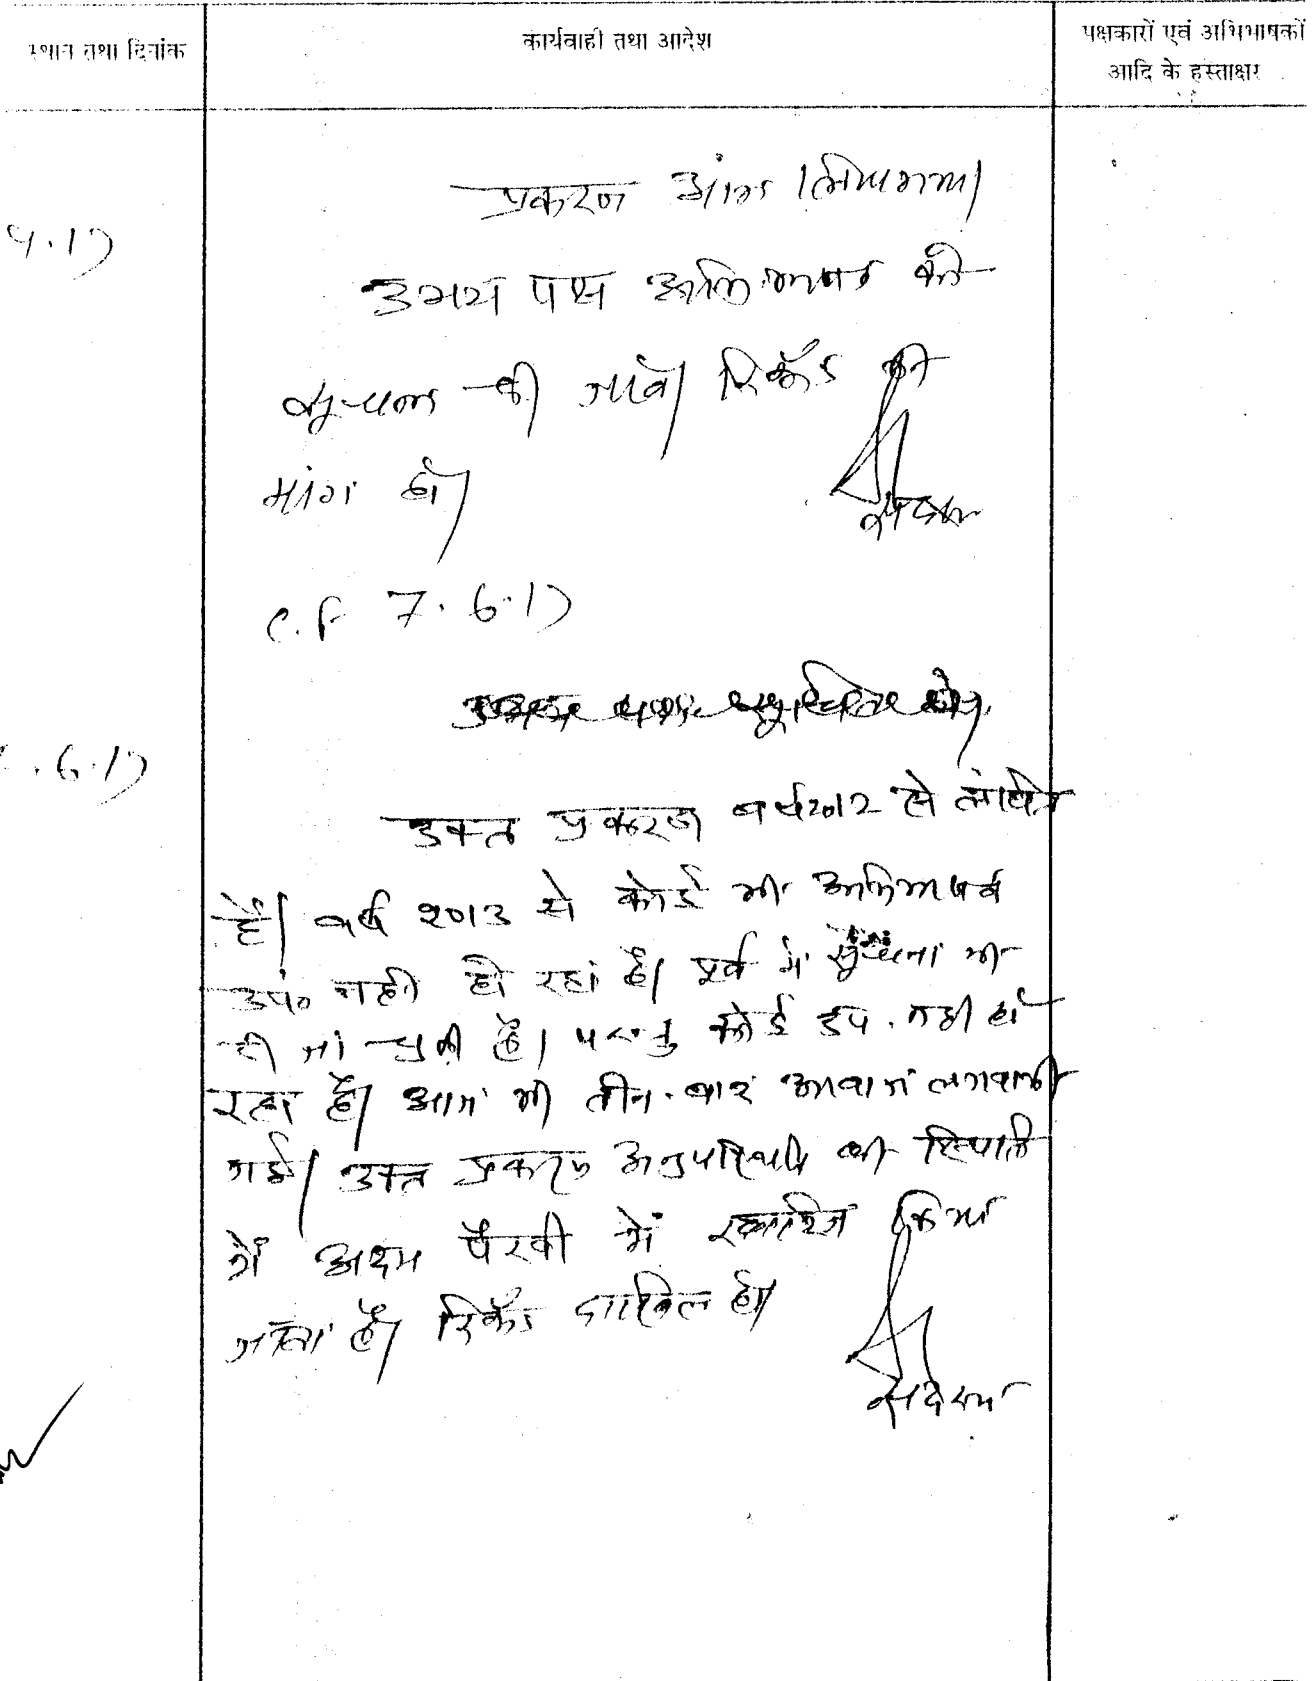 स्थान तथा दिनांक
कार्यवाही तथा आदेश
पक्षकारों एवं अभिभाषकों
आदि के हस्ताक्षर
4.17
प्रकरण लिया गया।
उभय पक्ष अभिभाषक को
सूचना दी जावे। रिकॉर्ड की
मांग हो।
सदस्य
C.F 7.6.17
.6.17
उक्त प्रकरण वर्ष 2012 से लंबित
है। वर्ष 2013 से कोई भी अभिभाषक
उप० नही हो रहा है। पूर्व में सूचना भी
दी जा चुकी है। परन्तु कोई उप. नही हो
रहा है। आज भी तीन बार आवाज लगवायी
गई। उक्त प्रकरण अनुपस्थिति की स्थिति
में अदम पैरवी में खारिज किया
जाता है। रिकॉर्ड दाखिल हो।
सदस्य